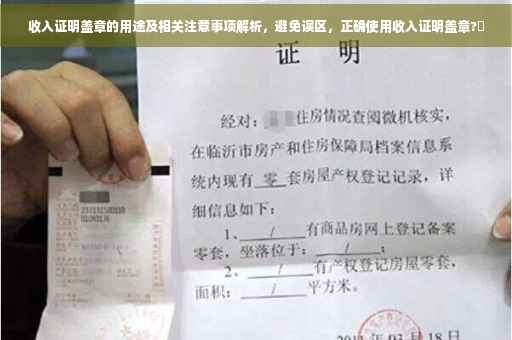 收入证明盖章的用途及相关注意事项解析，避免误区，正确使用收入证明盖章?
证 明
经对：住房情况查阅微机核实，
在临沂市房产和住房保障局档案信息系
统内现有 零 套房屋产权登记记录，详
细信息如下：
1、 / 有商品房网上登记备案
零套，坐落位于： / ；
2、 / 有产权登记房屋零套，
面积： / 平方米。
03 月 18 日